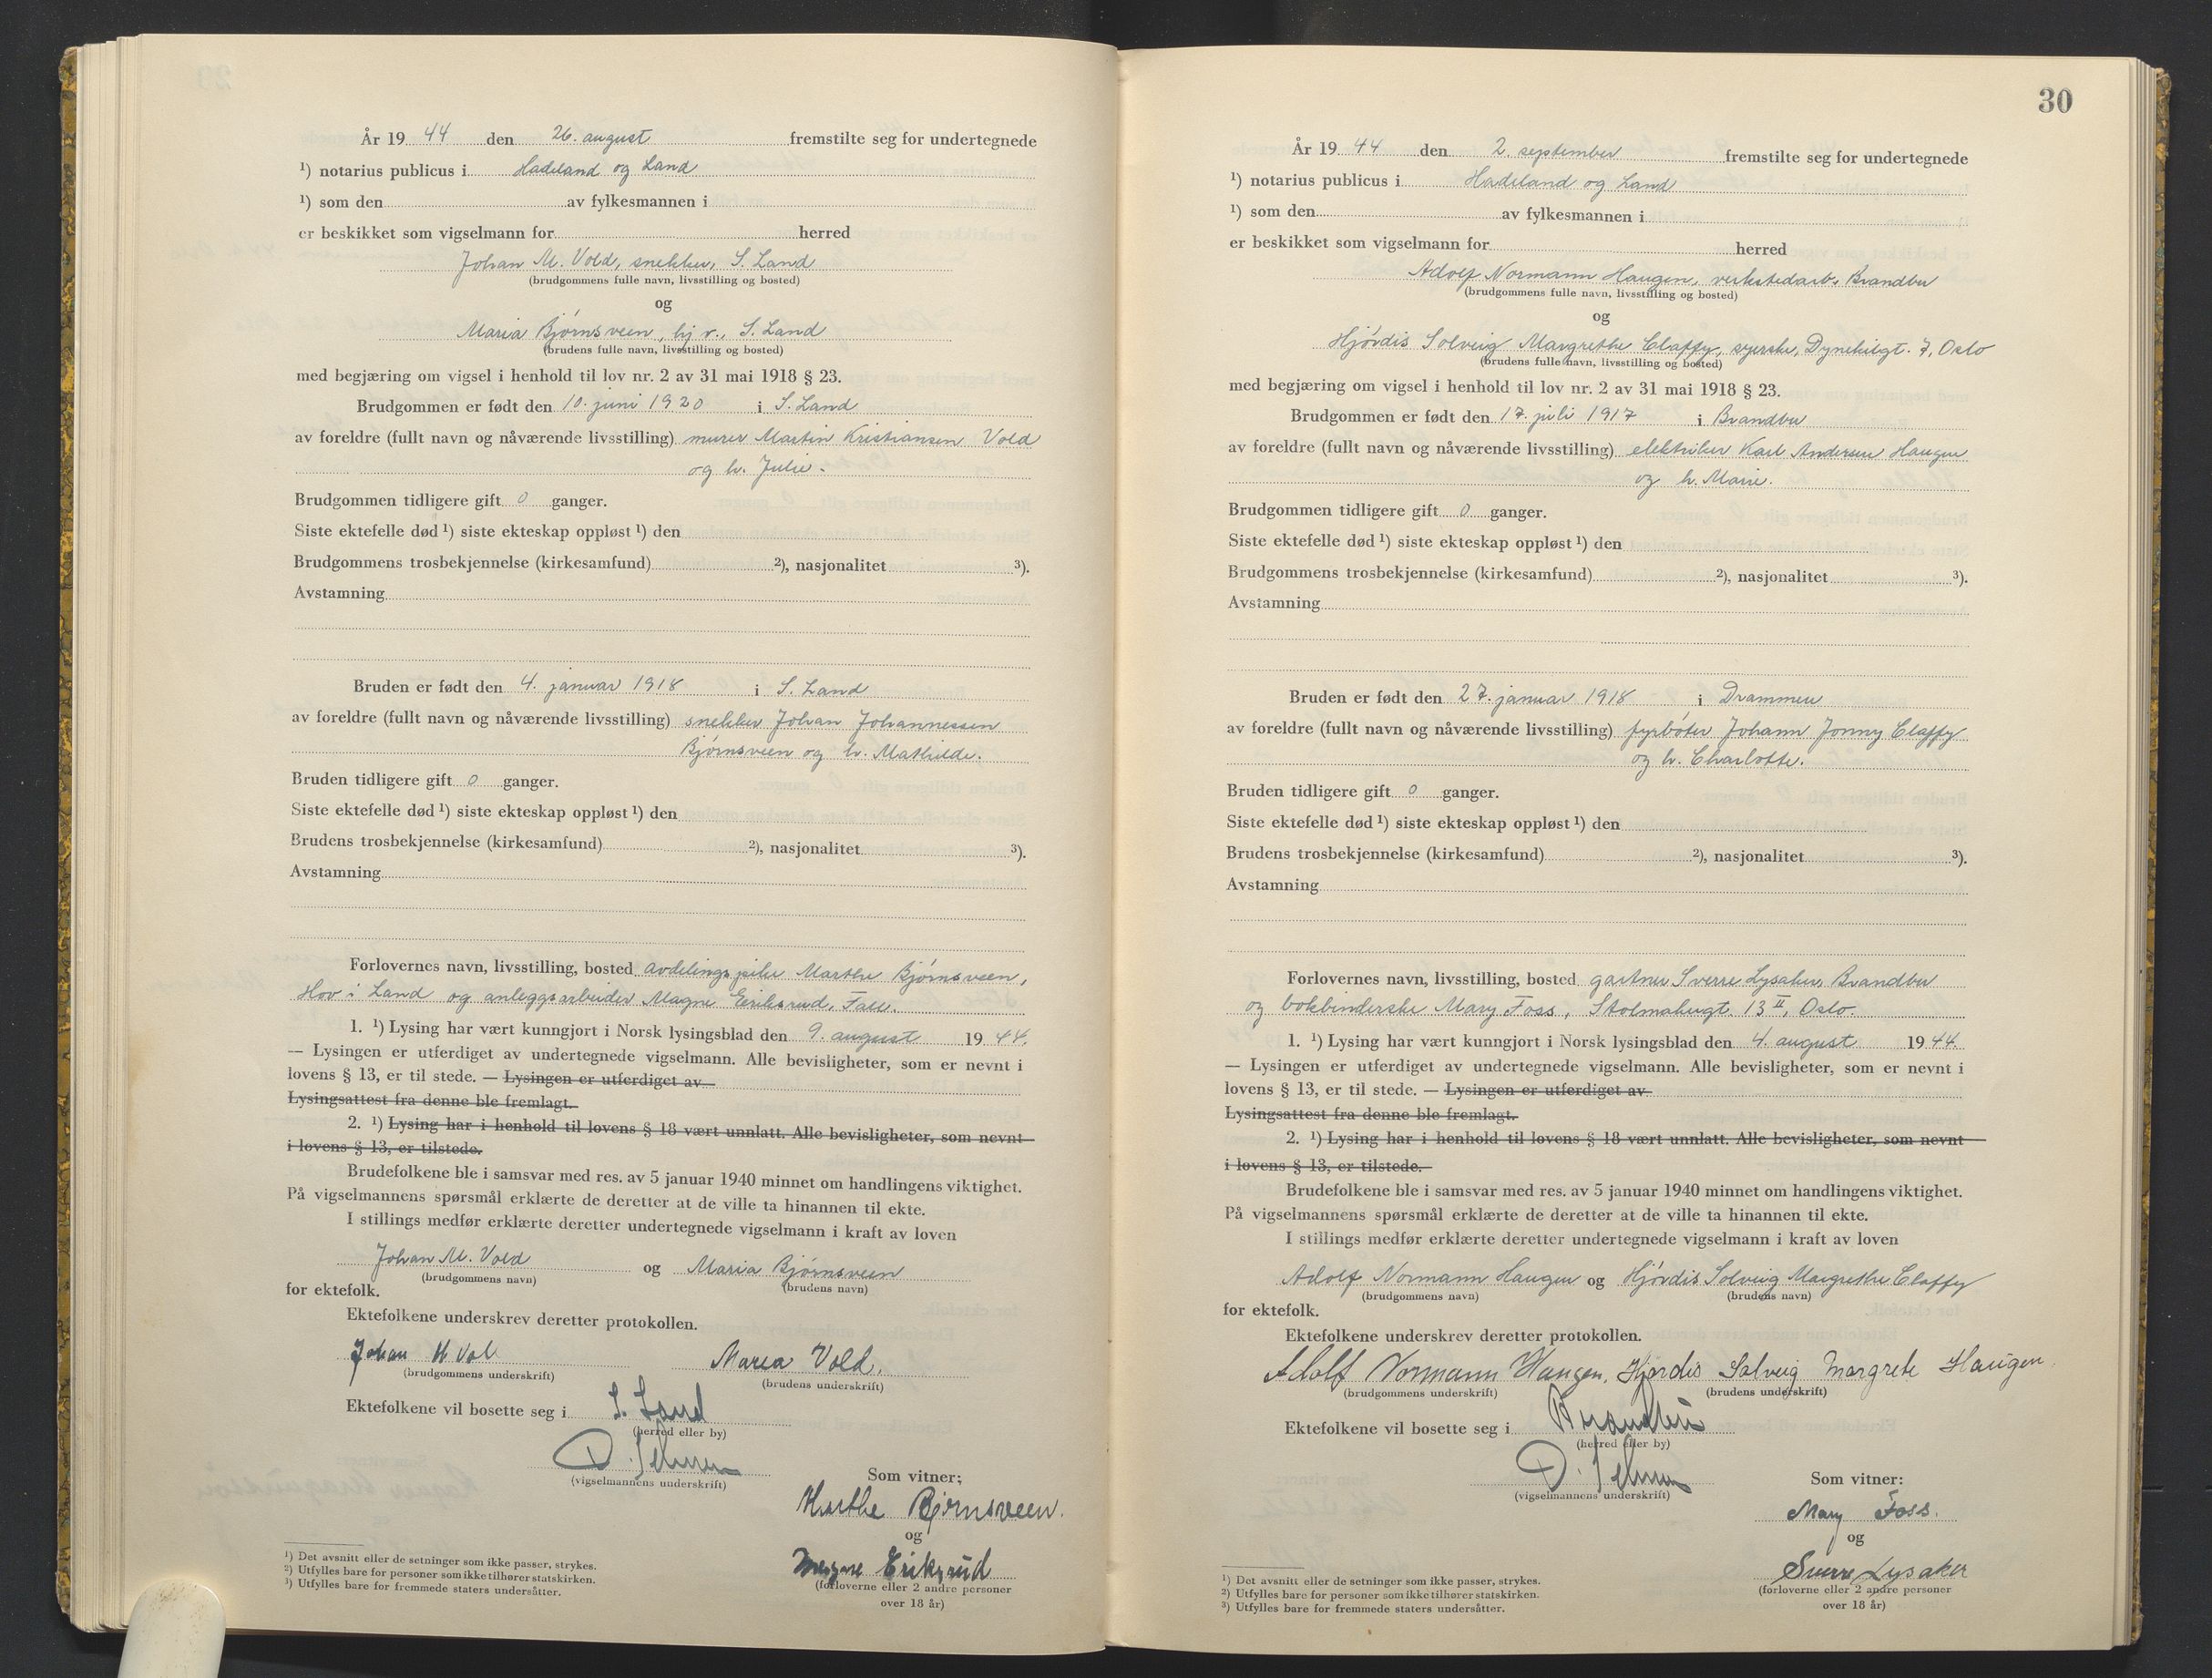 År 19 44 den 26. august fremstilte seg for undertegnede
¹) notarius publicus i Hadeland og Land
¹) som den av fylkesmannen i
er beskikket som vigselmann for herred
Johan M. Vold, snekker, S. Land
(brudgommens fulle navn, livsstilling og bosted)
og
Maria Bjørnsveen, hj v., S. Land
(brudens fulle navn, livsstilling og bosted)
med begjæring om vigsel i henhold til lov nr. 2 av 31 mai 1918 § 23.
Brudgommen er født den 10. juni 1920 i S. Land
av foreldre (fullt navn og nåværende livsstilling) murer Martin Kristiansen Vold
og h. Julie.
Brudgommen tidligere gift 0 ganger.
Siste ektefelle død ¹) siste ekteskap oppløst ¹) den
Brudgommens trosbekjennelse (kirkesamfund) ²), nasjonalitet ³).
Avstamning
Bruden er født den 4. januar 1918 i S. Land
av foreldre (fullt navn og nåværende livsstilling) snekker Johan Johannessen
Bjørnsveen og h. Mathilde.
Bruden tidligere gift 0 ganger.
Siste ektefelle død ¹) siste ekteskap oppløst ¹) den
Brudens trosbekjennelse (kirkesamfund) ²), nasjonalitet ³).
Avstamning
Forlovernes navn, livsstilling, bosted avdelings pike Marthe Bjørnsveen,
Hov i Land og anleggsarbeider Magne Eriksrud, Fall.
1. ¹) Lysing har vært kunngjort i Norsk lysingsblad den 9. august 19 44.
— Lysingen er utferdiget av undertegnede vigselmann. Alle bevisligheter, som er nevnt i
lovens § 13, er til stede. — Lysingen er utferdiget av
Lysingsattest fra denne ble fremlagt.
2. ¹) Lysing har i henhold til lovens § 18 vært unnlatt. Alle bevisligheter, som nevnt
i lovens § 13, er tilstede.
Brudefolkene ble i samsvar med res. av 5 januar 1940 minnet om handlingens viktighet.
På vigselmannens spørsmål erklærte de deretter at de ville ta hinannen til ekte.
I stillings medfør erklærte deretter undertegnede vigselmann i kraft av loven
Johan M. Vold og Maria Bjørnsveen
(brudgommens navn) (brudens navn)
for ektefolk.
Ektefolkene underskrev deretter protokollen.
Johan M Vol Maria Vold.
(brudgommens underskrift) (brudens underskrift)
Ektefolkene vil bosette seg i S. Land
(herred eller by)
(vigselmannens underskrift)
Som vitner;
Marthe Bjørnsveen.
og
Magne Eriksrud
(forloverne eller 2 andre personer
over 18 år)
¹) Det avsnitt eller de setninger som ikke passer, strykes.
²) Utfylles bare for personer som ikke tilhører statskirken.
³) Utfylles bare for fremmede staters undersåtter.
30
År 19 44 den 2. september fremstilte seg for undertegnede
¹) notarius publicus i Hadeland og Land
¹) som den av fylkesmannen i
er beskikket som vigselmann for herred
Adolf Normann Haugen, verkstedarb., Brandbu
(brudgommens fulle navn, livsstilling og bosted)
og
Hjördis Solveig Margrethe Claffy, syerske, Dynekilgt. 7, Oslo
(brudens fulle navn, livsstilling og bosted)
med begjæring om vigsel i henhold til lov nr. 2 av 31 mai 1918 § 23.
Brudgommen er født den 17. juli 1917 i Brandbu
av foreldre (fullt navn og nåværende livsstilling) elektriker Karl Andersen Haugen
og h. Marie.
Brudgommen tidligere gift 0 ganger.
Siste ektefelle død ¹) siste ekteskap oppløst ¹) den
Brudgommens trosbekjennelse (kirkesamfund) ²), nasjonalitet ³).
Avstamning
Bruden er født den 27. januar 1918 i Drammen
av foreldre (fullt navn og nåværende livsstilling) fyrböter Johann Jonny Claffy
og h. Charlotte.
Bruden tidligere gift 0 ganger.
Siste ektefelle død ¹) siste ekteskap oppløst ¹) den
Brudens trosbekjennelse (kirkesamfund) ²), nasjonalitet ³).
Avstamning
Forlovernes navn, livsstilling, bosted gartner Sverre Lysaker, Brandbu
og bokbinderske Mary Foss, Stolmakergt. 13 II, Oslo.
1. ¹) Lysing har vært kunngjort i Norsk lysingsblad den 4. august 19 44.
— Lysingen er utferdiget av undertegnede vigselmann. Alle bevisligheter, som er nevnt i
lovens § 13, er til stede. — Lysingen er utferdiget av
Lysingsattest fra denne ble fremlagt.
2. ¹) Lysing har i henhold til lovens § 18 vært unnlatt. Alle bevisligheter, som nevnt
i lovens § 13, er tilstede.
Brudefolkene ble i samsvar med res. av 5 januar 1940 minnet om handlingens viktighet.
På vigselmannens spørsmål erklærte de deretter at de ville ta hinannen til ekte.
I stillings medfør erklærte deretter undertegnede vigselmann i kraft av loven
Adolf Normann Haugen og Hjördis Solveig Margrethe Claffy
(brudgommens navn) (brudens navn)
for ektefolk.
Ektefolkene underskrev deretter protokollen.
Adolf Normann Haugen. Hjørdis Solveig Margrete Haugen.
(brudgommens underskrift) (brudens underskrift)
Ektefolkene vil bosette seg i Brandbu
(herred eller by)
(vigselmannens underskrift)
Som vitner:
Mary Foss.
og
Sverre Lysaker
(forloverne eller 2 andre personer
over 18 år)
¹) Det avsnitt eller de setninger som ikke passer, strykes.
²) Utfylles bare for personer som ikke tilhører statskirken.
³) Utfylles bare for fremmede staters undersåtter.